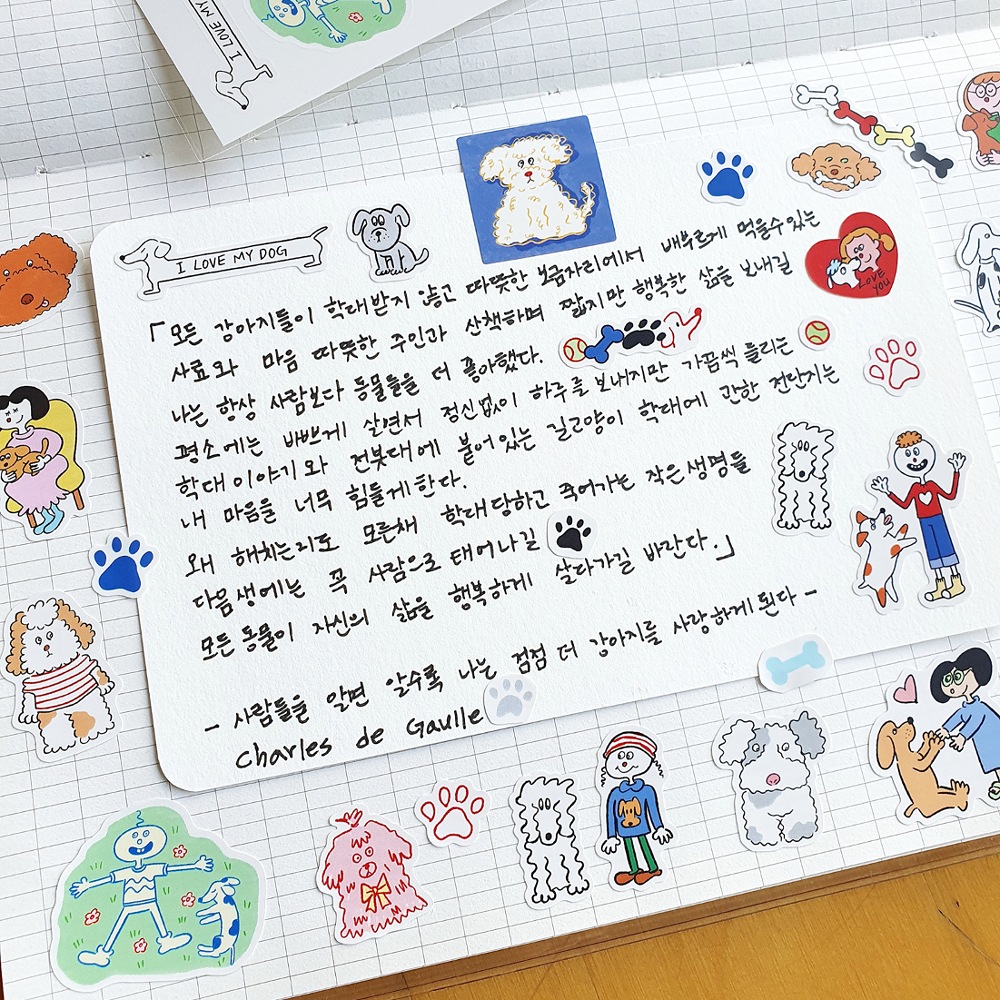 I LOVE MY
I LOVE MY DOG
LOVE YOU
「모든 강아지들이 학대받지 않고 따뜻한 보금자리에서 배부르게 먹을수있는
사료와 마음 따뜻한 주인과 산책하며 짧지만 행복한 삶을 보내길
나는 항상 사람보다 동물들을 더 좋아했다.
평소에는 바쁘게 살면서 정신없이 하루를 보내지만 가끔씩 들리는
학대이야기와 전봇대에 붙어있는 길고양이 학대에 관한 전단지는
내 마음을 너무 힘들게한다.
왜 해치는지도 모른채 학대당하고 죽어가는 작은생명들
다음생에는 꼭 사람으로 태어나길
모든동물이 자신의 삶을 행복하게 살다가길 바란다.」
- 사람들을 알면 알수록 나는 점점 더 강아지를 사랑하게 된다 -
Charles de Gaulle